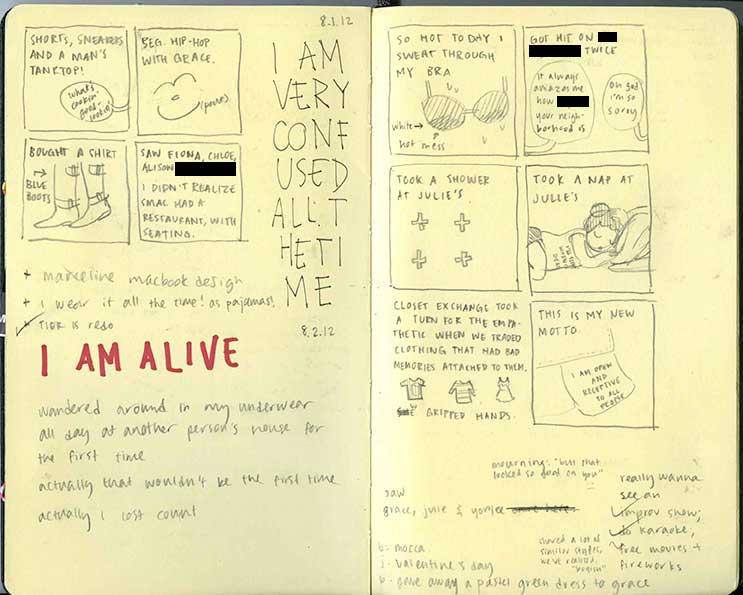 8.1.12
SHORTS, SNEAKERS
AND A MAN'S
TANKTOP!
what's
cookin'
good
lookin'
BEG. HIP-HOP
WITH GRACE.
(poures)
BOUGHT A SHIRT
→
BLUE
BOOTS
SAW FIONA, CHLOE,
ALISON
I DIDN'T REALIZE
SMAC HAD A
RESTAURANT, WITH
SEATING.
I AM
VERY
CONF
USED
ALL T
HE TI
ME
+ marceline macbook design
+ i wear it all the time! as pajamas!
+ TIER is redo
8.2.12
I AM ALIVE
wandered around in my underwear
all day at another person's house for
the first time
actually that wouldn't be the first time
actually i lost count
SO HOT TODAY I
SWEAT THROUGH
MY BRA
white →
hot mess
GOT HIT ON
TWICE
it always
amazes me
how
your neigh-
borhood is
oh god
i'm so
sorry
TOOK A SHOWER
AT JULIE'S
TOOK A NAP AT
JULIE'S
CLOSET EXCHANGE TOOK
A TURN FOR THE EMPA-
THETIC WHEN WE TRADED
CLOTHING THAT HAD BAD
MEMORIES ATTACHED TO THEM.
GRIPPED HANDS.
THIS IS MY NEW
MOTTO
I AM OPEN
AND
RECEPTIVE
TO ALL
PEOPLE
mourning: "but that
looked so good on you"
saw
grace, julie & yoniee
b. mocca
j. valentine's day
b. gave away a pastel green dress to grace
shared a lot of
similar styles,
we've realized.
really wanna
see an
improv show;
do karaoke;
free movies +
fireworks